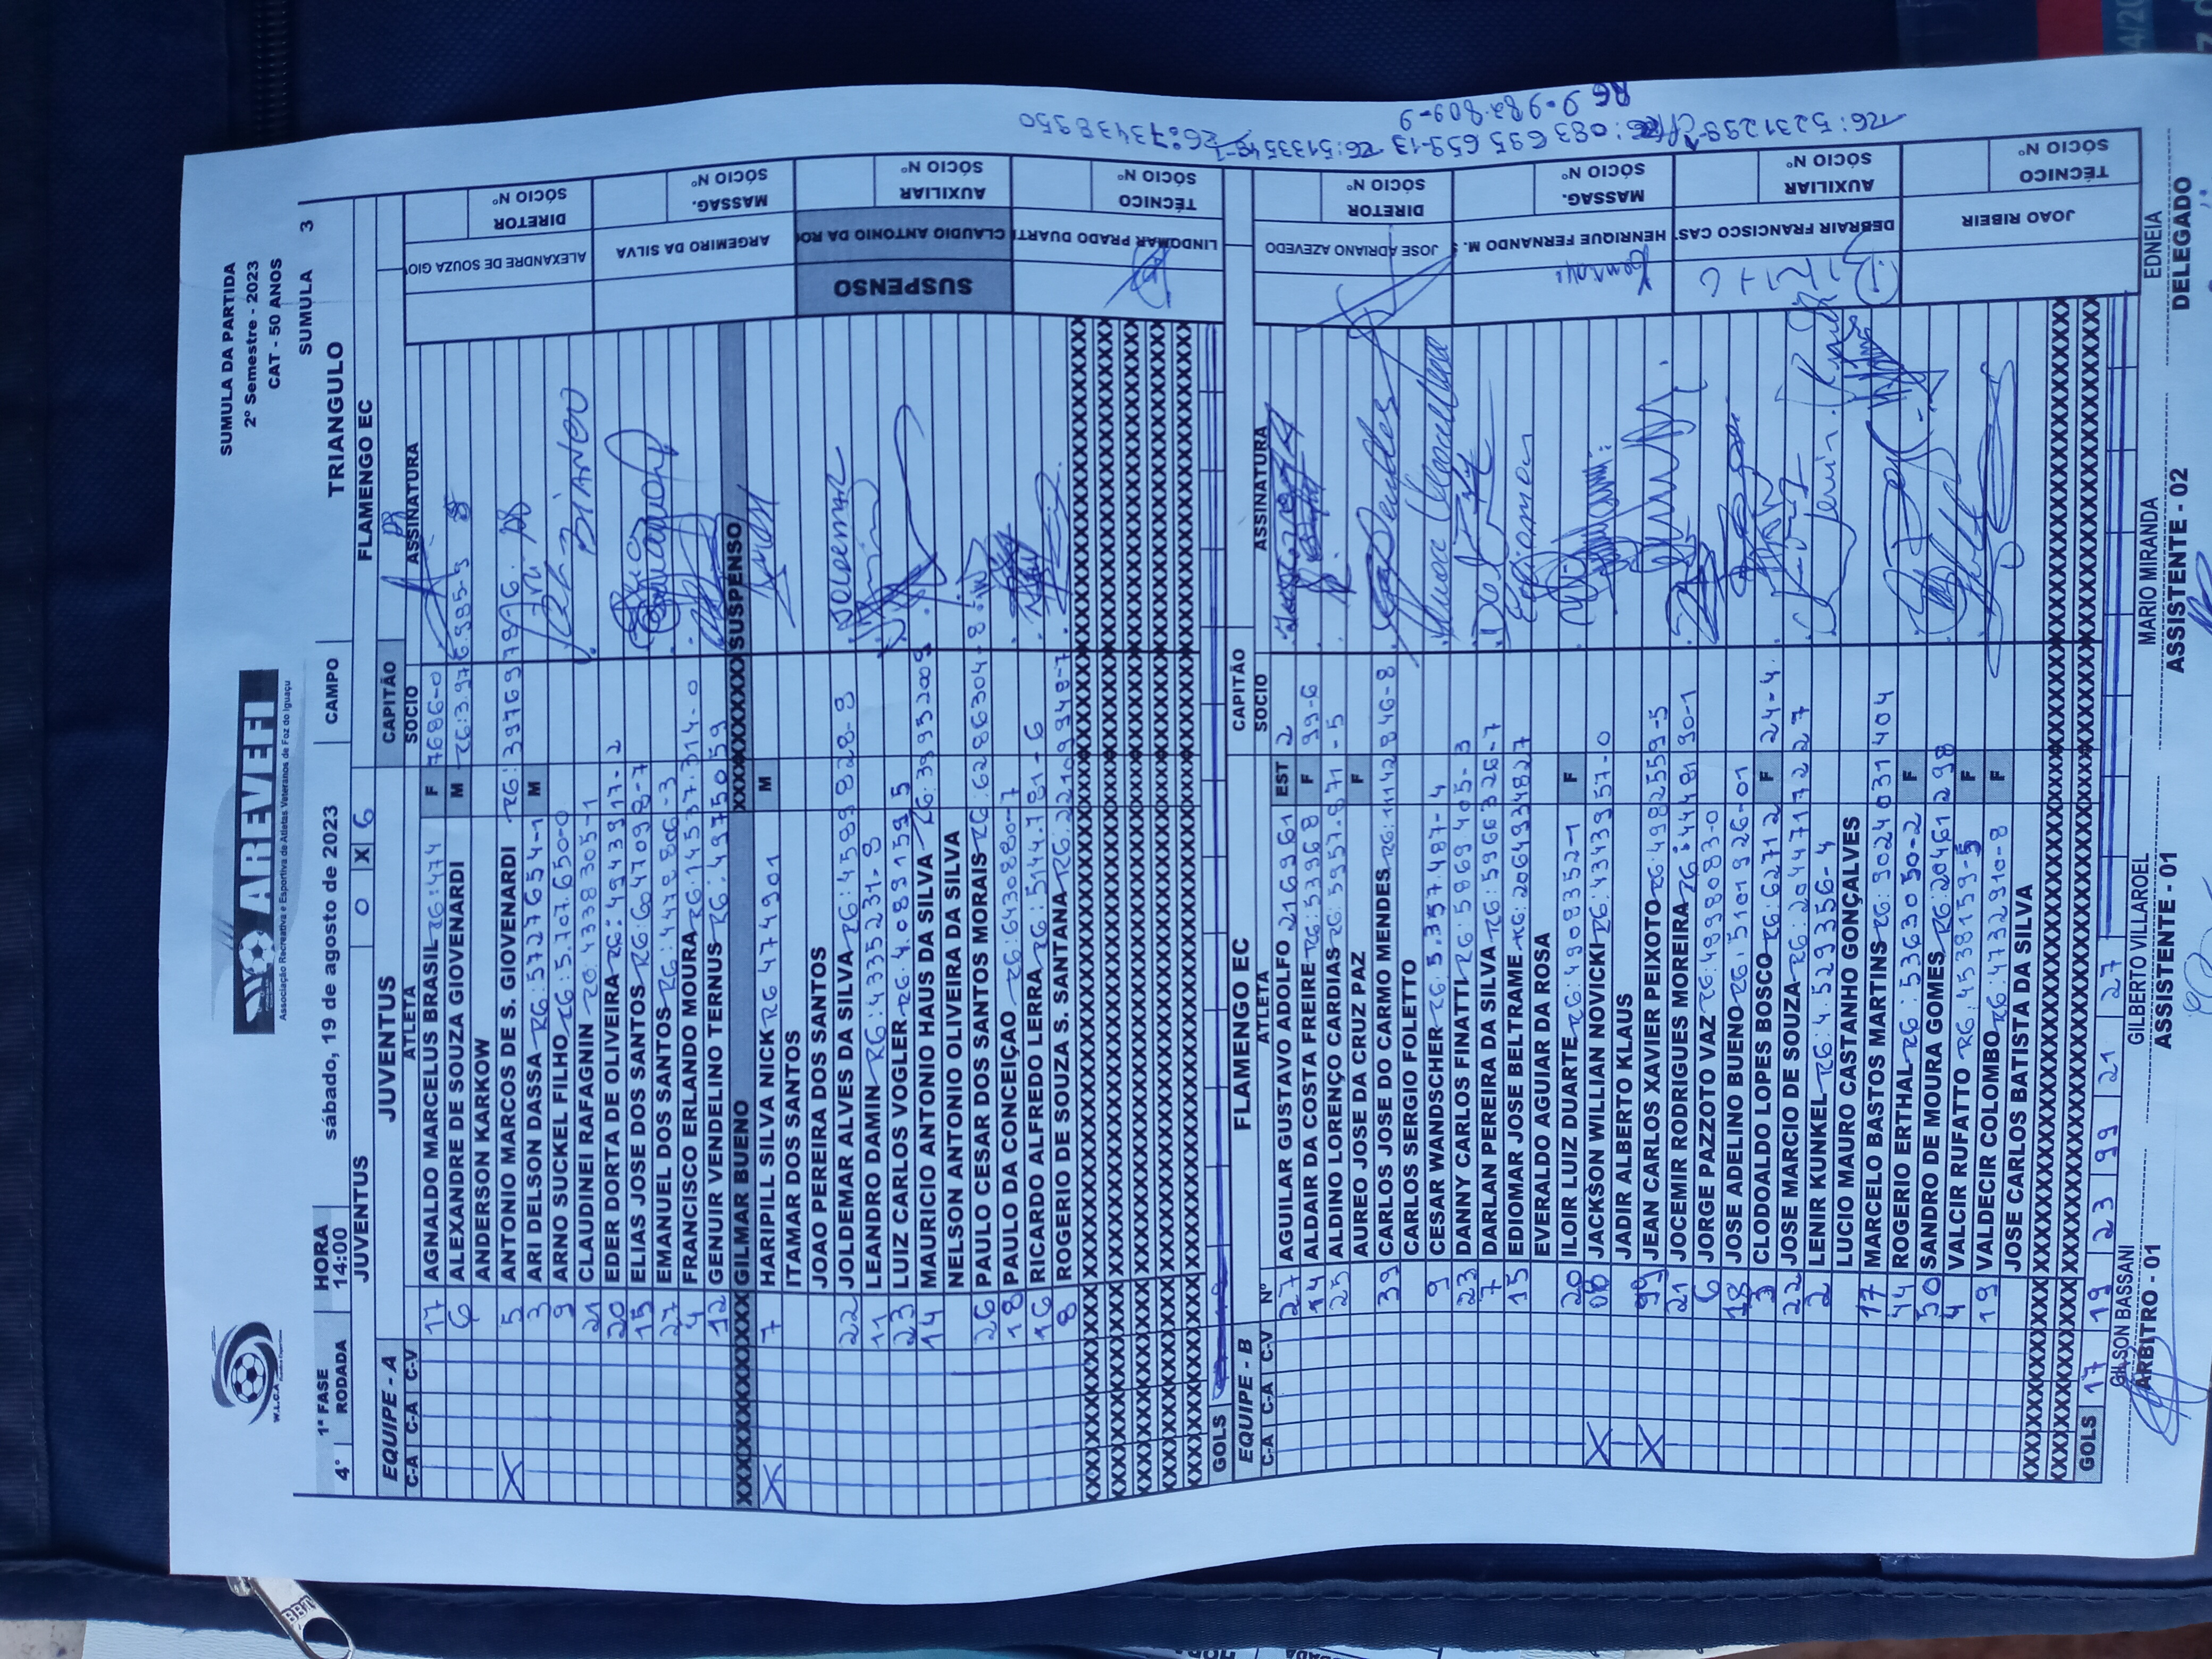 SUMULA DA PARTIDA
2º Semestre - 2023
CAT - 50 ANOS
W.L.C.A
AREVEFI
Associação Recreativa e Esportiva de Atletas Veteranos de Foz do Iguaçu
SUMULA 3
4ª 1ª FASE RODADA HORA 14:00 sábado, 19 de agosto de 2023 CAMPO TRIANGULO
JUVENTUS 0 X 6 FLAMENGO EC
EQUIPE - A JUVENTUS CAPITÃO
C-A C-A C-V ATLETA SOCIO ASSINATURA
17 AGNALDO MARCELUS BRASIL RG:474 F 7686-0
6 ALEXANDRE DE SOUZA GIOVENARDI M RG:3.976.985-5
ANDERSON KARKOW
X 5 ANTONIO MARCOS DE S. GIOVENARDI RG:39769789
3 ARI DELSON DASSA RG:5727654-1 M
9 ARNO SUCKEL FILHO RG:5.707.650-0
21 CLAUDINEI RAFAGNIN RG:4338305-1
20 EDER DORTA DE OLIVEIRA RG:4943917-2
15 ELIAS JOSE DOS SANTOS RG:6047098-7
27 EMANUEL DOS SANTOS RG:4478806-3
4 FRANCISCO ERLANDO MOURA RG:14537.314-0
12 GENUIR VENDELINO TERNUS RG:4975059
GILMAR BUENO SUSPENSO
X 7 HARIPILL SILVA NICK RG 4774901 M
ITAMAR DOS SANTOS
JOAO PEREIRA DOS SANTOS
22 JOLDEMAR ALVES DA SILVA RG:4589828-9
11 LEANDRO DAMIN RG:4335231-8
23 LUIZ CARLOS VOGLER RG:4.089159-5
14 MAURICIO ANTONIO HAUS DA SILVA RG:39953209
NELSON ANTONIO OLIVEIRA DA SILVA
26 PAULO CESAR DOS SANTOS MORAIS RG:6286304-8
18 PAULO DA CONCEIÇÃO RG:6430880-7
16 RICARDO ALFREDO LERRA RG:5144.781-6
8 ROGERIO DE SOUZA S. SANTANA RG:22109948-7
GOLS
ALEXANDRE DE SOUZA GIO DIRETOR SÓCIO Nº
ARGEMIRO DA SILVA MASSAG. SÓCIO Nº
SUSPENSO CLAUDIO ANTONIO DA ROC AUXILIAR SÓCIO Nº
LINDOMAR PRADO DUARTE TÉCNICO SÓCIO Nº
EQUIPE - B FLAMENGO EC CAPITÃO
C-A C-A C-V Nº ATLETA SOCIO ASSINATURA
27 AGUILAR GUSTAVO ADOLFO 216961 EST 2
14 ALDAIR DA COSTA FREIRE RG:53968 F 99-6
25 ALDINO LORENÇO CARDIAS RG:5957.871-5
AUREO JOSE DA CRUZ PAZ F
39 CARLOS JOSE DO CARMO MENDES RG:11142846-8
CARLOS SERGIO FOLETTO
9 CESAR WANDSCHER RG:5.3574487-4
23 DANNY CARLOS FINATTI RG:5869405-3
7 DARLAN PEREIRA DA SILVA RG:5966326-7
15 EDIOMAR JOSE BELTRAME RG:2064934827
EVERALDO AGUIAR DA ROSA
20 ILOIR LUIZ DUARTE RG:4908352-1 F
X 08 JACKSON WILLIAN NOVICKI RG:4343957-0
JADIR ALBERTO KLAUS
X 99 JEAN CARLOS XAVIER PEIXOTO RG:4982559-5
21 JOCEMIR RODRIGUES MOREIRA RG:4448190-1
6 JORGE PAZZOTO VAZ RG:4998083-0
18 JOSE ADELINO BUENO RG:5101926-01
3 CLODOALDO LOPES BOSCO RG:62712 F 24-4
22 JOSE MARCIO DE SOUZA RG:2044717227
2 LENIR KUNKEL RG:4.529356-4
LUCIO MAURO CASTANHO GONÇALVES
17 MARCELO BASTOS MARTINS RG:9024031404
44 ROGERIO ERTHAL RG:5363050-2 F
50 SANDRO DE MOURA GOMES RG:20461298
4 VALCIR RUFATTO RG:4538159-5 F
19 VALDECIR COLOMBO RG:4732910-8 F
JOSE CARLOS BATISTA DA SILVA
GOLS 17 19 23 99 21 27
JOSE ADRIANO AZEVEDO DIRETOR SÓCIO Nº
HENRIQUE FERNANDO M. MASSAG. SÓCIO Nº
DEBRAIR FRANCISCO CAS AUXILIAR SÓCIO Nº
JOAO RIBEIR TÉCNICO SÓCIO Nº
RG:73438950
RG:5133549-1
RG:083695659-13
RG 9.982.809-9
RG:5231298
GILSON BASSANI GILBERTO VILLAROEL MARIO MIRANDA EDNEIA
ARBITRO - 01 ASSISTENTE - 01 ASSISTENTE - 02 DELEGADO